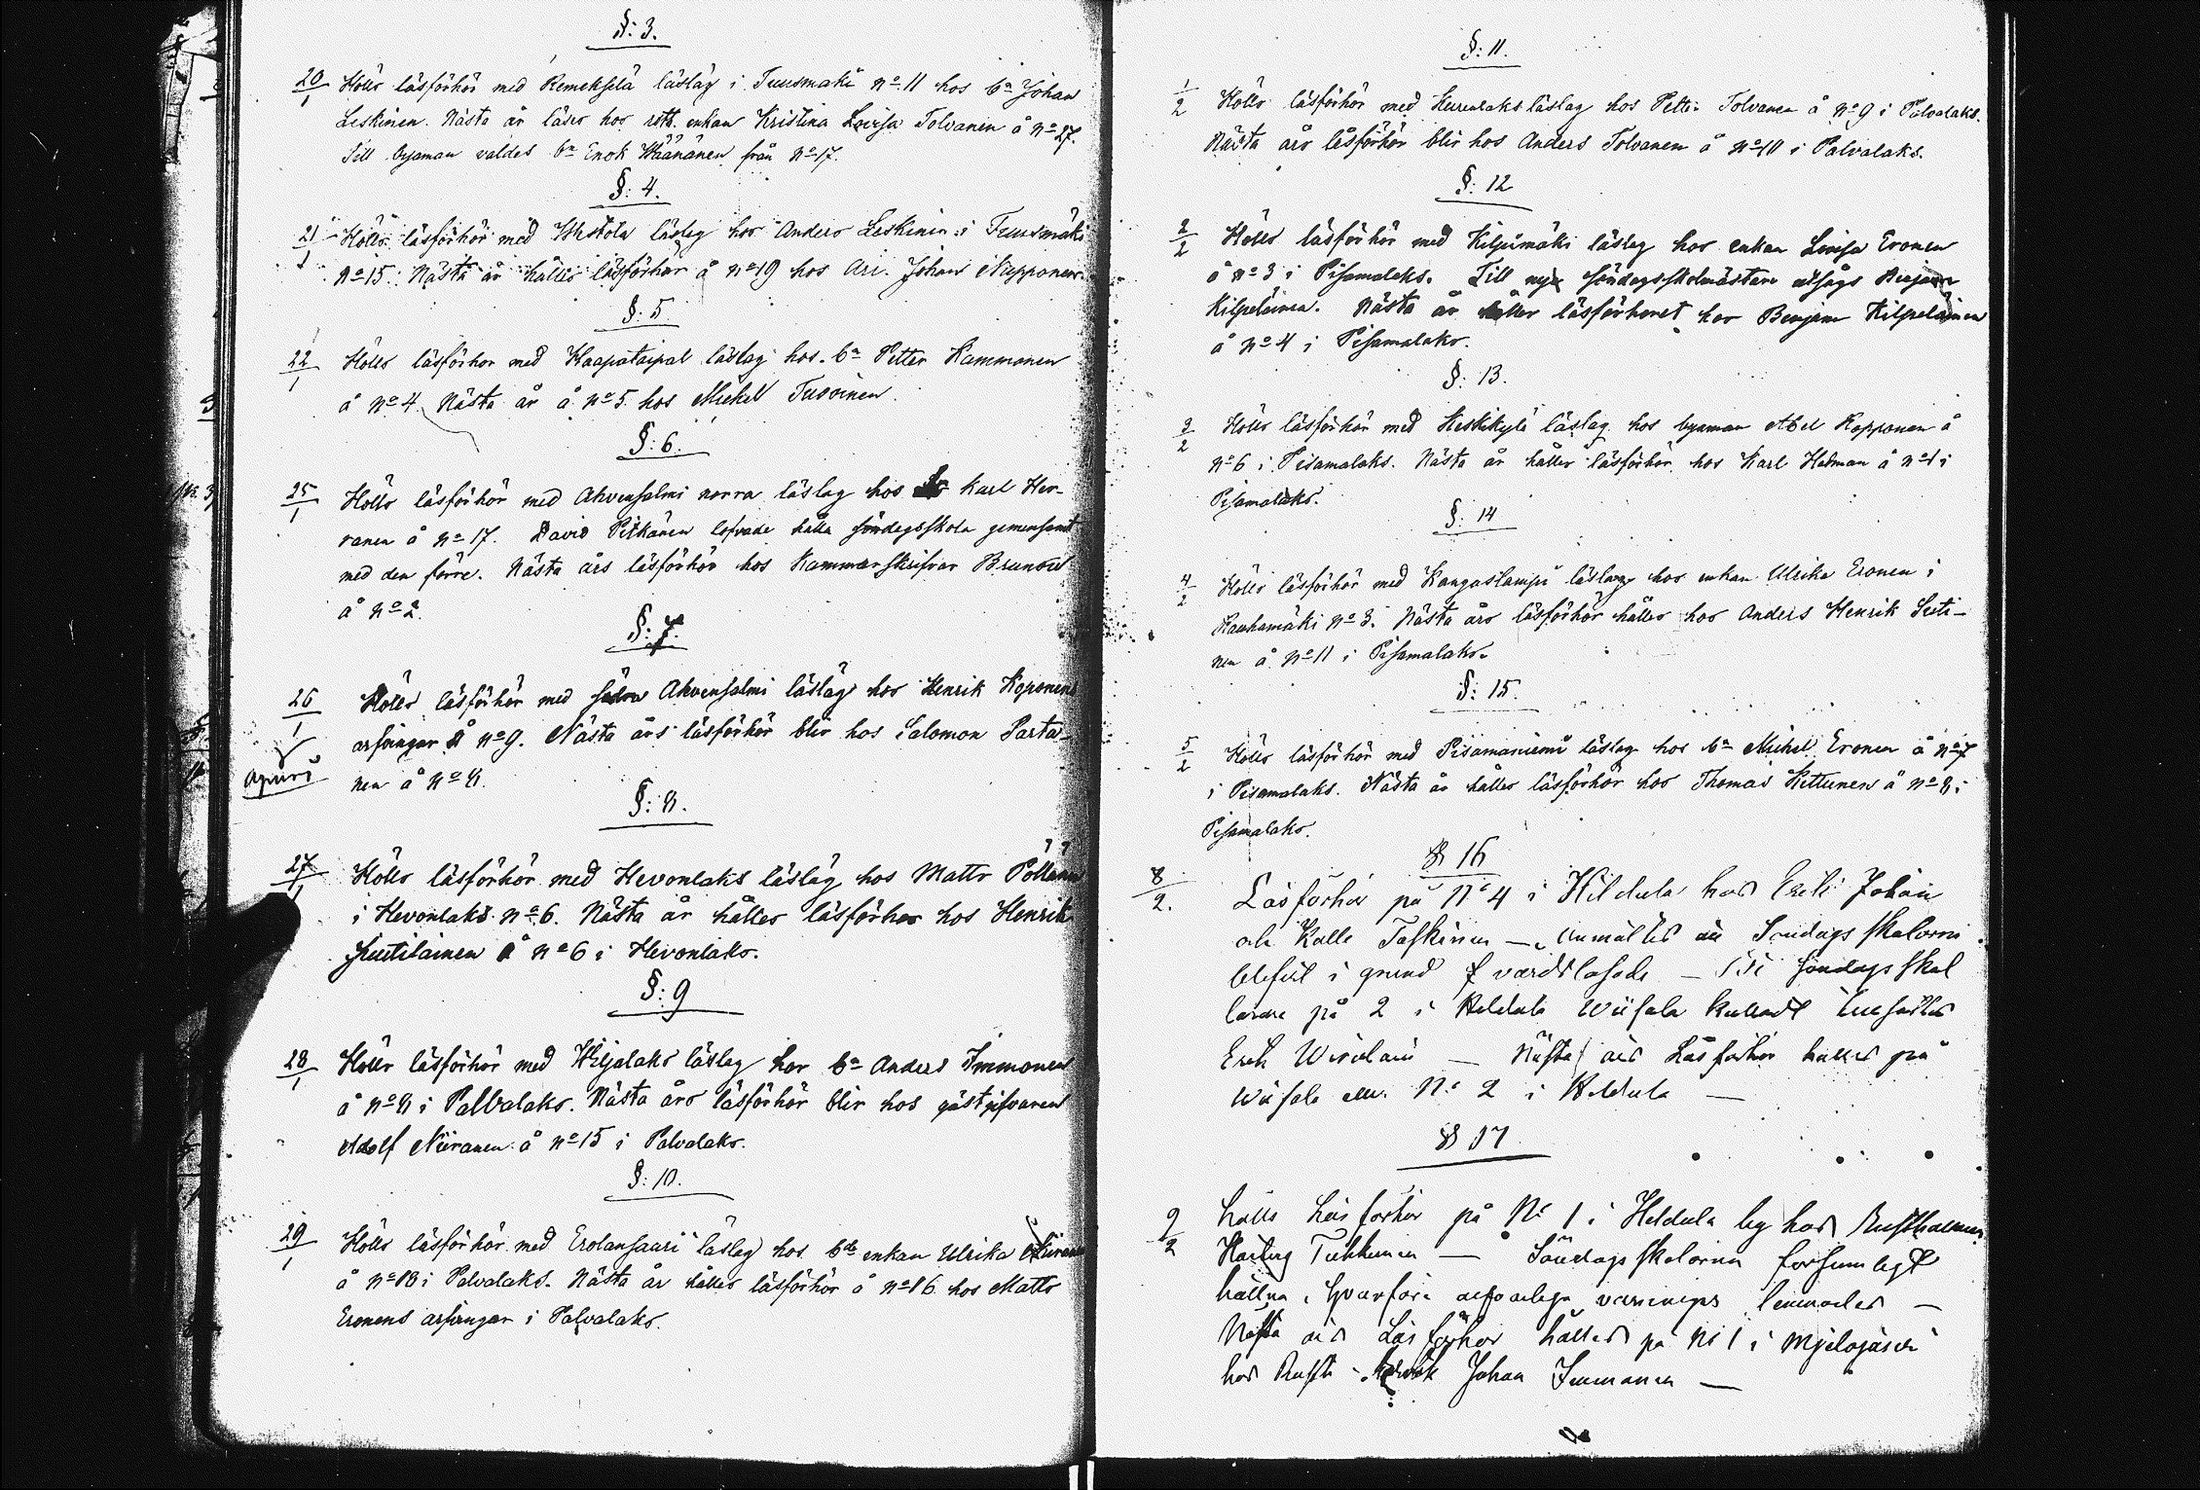 §: 3.
20/1 Hölls läsförhör med Remekselä läslag i Tuusmäki No 11 hos bn Johan
Leskinen. Nästa år läses hos enkan Kristina Lovisa Tolvanen å No 27.
Till byaman valdes bn Enok Väänänen från No 17.
§: 4.
21/1 Hölls läsförhör med läslag hos Anders Leskinen i Tuusmäki
No 15. Nästa år hålles läsförhör å No 19 hos Arr. Johan Nupponen.
§: 5.
22/1 Hölls läsförhör med Haapataipal läslag hos bn Petter Kammonen
å No 4. Nästa år å No 5 hos Mickel
§: 6.
25/1 Hölls läsförhör med Ahvensalmi norra läslag hos Karl Her-
ranen å No 17. David Pitkänen lofvade hålla söndagsskola gemensamt
med den förre. Nästa års läsförhör hos Kammarskrifvar Brunou
å No 2.
§: 7.
26/1 Hölls läsförhör med södra Ahvensalmi läslag hos Henrik Koponens
arfvingar å No 9. Nästa års läsförhör blir hos Salomon Parta-
nen å No 8.
§: 8.
27/1 Hölls läsförhör med Hevonlaks läslag hos Matts Pöllänen
i Hevonlaks No 6. Nästa år hålles läsförhör hos Henrik
Juutilainen å No 6 i Hevonlaks.
§: 9
28/1 Hölls läsförhör med Viljalaks läslag hos bn Anders Immonen
å No 8 i Palvalaks. Nästa års läsförhör blir hos gästgifvaren
Adolf Niiranen å No 15 i Palvalaks.
§: 10.
29/1 Hölls läsförhör med Erolansaari läslag hos bde enkan Ulrika Niiranen
å No 18 i Palvalaks. Nästa år hålles läsförhör å No 16 hos Matts
Eronens arfvingar i Palvalaks.
§: 11.
1/2 Hölls läsförhör med läslag hos Petter Tolvanen å No 9 i Palvalaks.
Nästa års läsförhör blir hos Anders Tolvanen å No 10 i Palvalaks.
§: 12
2/2 Hölls läsförhör med Kilpimäki läslag hos enkan Lovisa Eronen
å No 3 i Pisamalaks. Till ny söndagsskolmästare utsågs Benjam
Kilpeläinen. Nästa år hålles läsförhöret hos Benjam Kilpeläinen
å No 4 i Pisamalaks.
§: 13.
3/2 Hölls läsförhör med Keskikylä läslag hos byaman Abel Kopponen å
No 6 i Pisamalaks. Nästa år hålles läsförhör hos Karl Halman å No 1 i
Pisamalaks.
§: 14
4/2 Hölls läsförhör med Kangaslampi läslag hos enkan Ulrika Eronen i
Rauhamäki No 3. Nästa års läsförhör hålles hos Anders Henrik Suti-
nen å No 11 i Pisamalaks.
§: 15.
5/2 Hölls läsförhör med Pisamaniemi läslag hos bn Mickel Eronen å No 7
i Pisamalaks. Nästa år hålles läsförhör hos Thomas Kettunen å No 8 i
Pisamalaks.
§ 16
8/2. Läsförhör på No 4 i Hildula hos Erik Johan
och Kalle Taskinen — anmältes att Söndags skolorna
blefvit i grund vårdslösade — Till söndags skol
lärare på 2 i Hildula
Erik — Nästa års Läsförhör hålles på
No 2 i Hildula —
§ 17
9/2 hölls Läsförhör på No 1 i Hildula by hos Rusthållaren
Tukkunen — Söndags skolorna försumligt
hållna, hvarföre alfvarliga varningar lemnades —
Nästa års Läsförhör hålles på No 1 i
hos Johan Immonen —